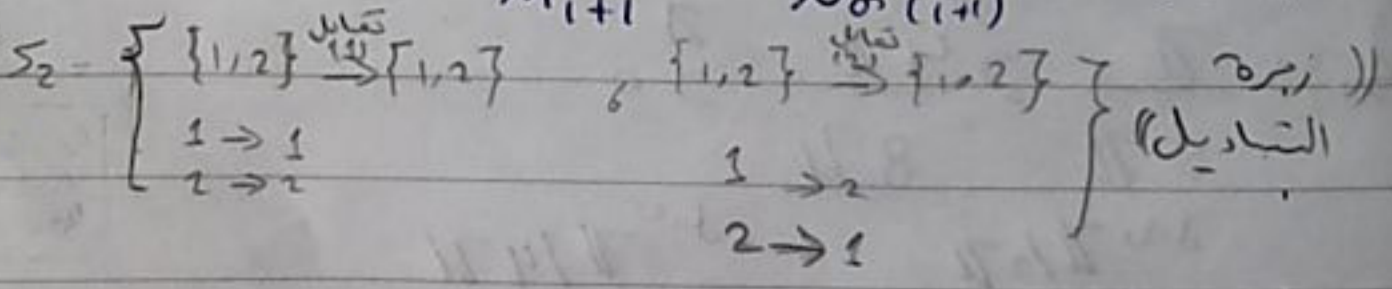 i+1 (i+1)
S₂ = { {1,2} تقابل→ {1,2} , {1,2} تقابل→ {1,2} } (( زمرة
1 → 1 1 → 2 التباديل ))
2 → 2
2 → 1